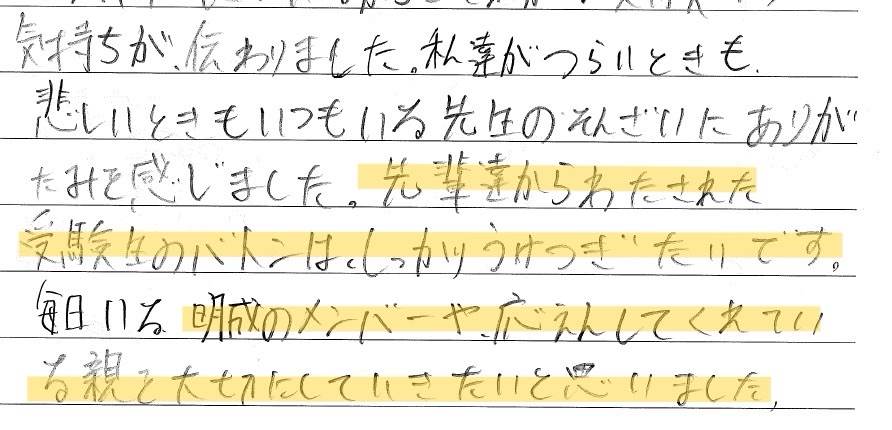 気持ちが、伝わりました。私達がつらいときも、
悲しいときもいつもいる先生のそんざいにありが
たみを感じました。先輩達からわたされた
受験生のバトンは、しっかりうけつぎたいです。
毎日いる明成のメンバーや、応えんしてくれてい
る親を大切にしていきたいと思いました。